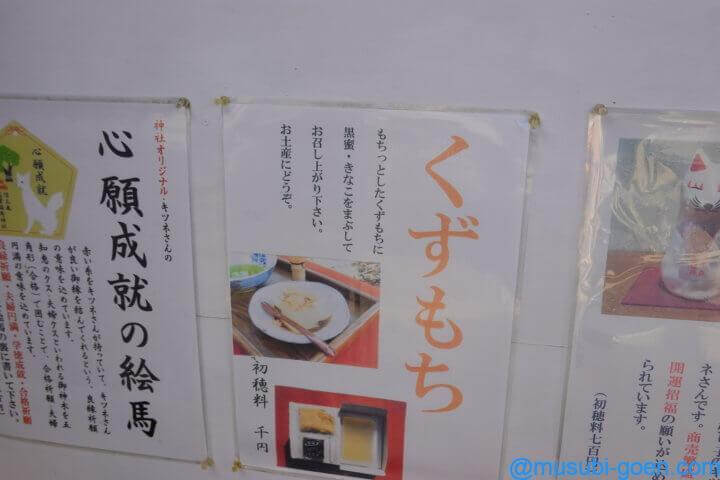 くずもち
もちっとしたくずもちに
黒蜜・きなこをまぶして
お召し上がり下さい。
お土産にどうぞ。
初穂料 千円
神社オリジナル・キツネさんの
心願成就の絵馬
心願成就
赤い糸をキツネさんが持っていて、キツネさん
が良い御縁を結んでくれるという、良縁祈願
の意味を込めています。
知恵のクス・夫婦クスといわれる御神木を五
角形(合格)で囲むことで、合格祈願・夫婦
円満の意味を込めています。
良縁祈願・夫婦円満・学徳成就・合格祈願
ネさんです。商売繁
開運招福の願いが込め
られています。
(初穂料七百円
@musubi-goen.com